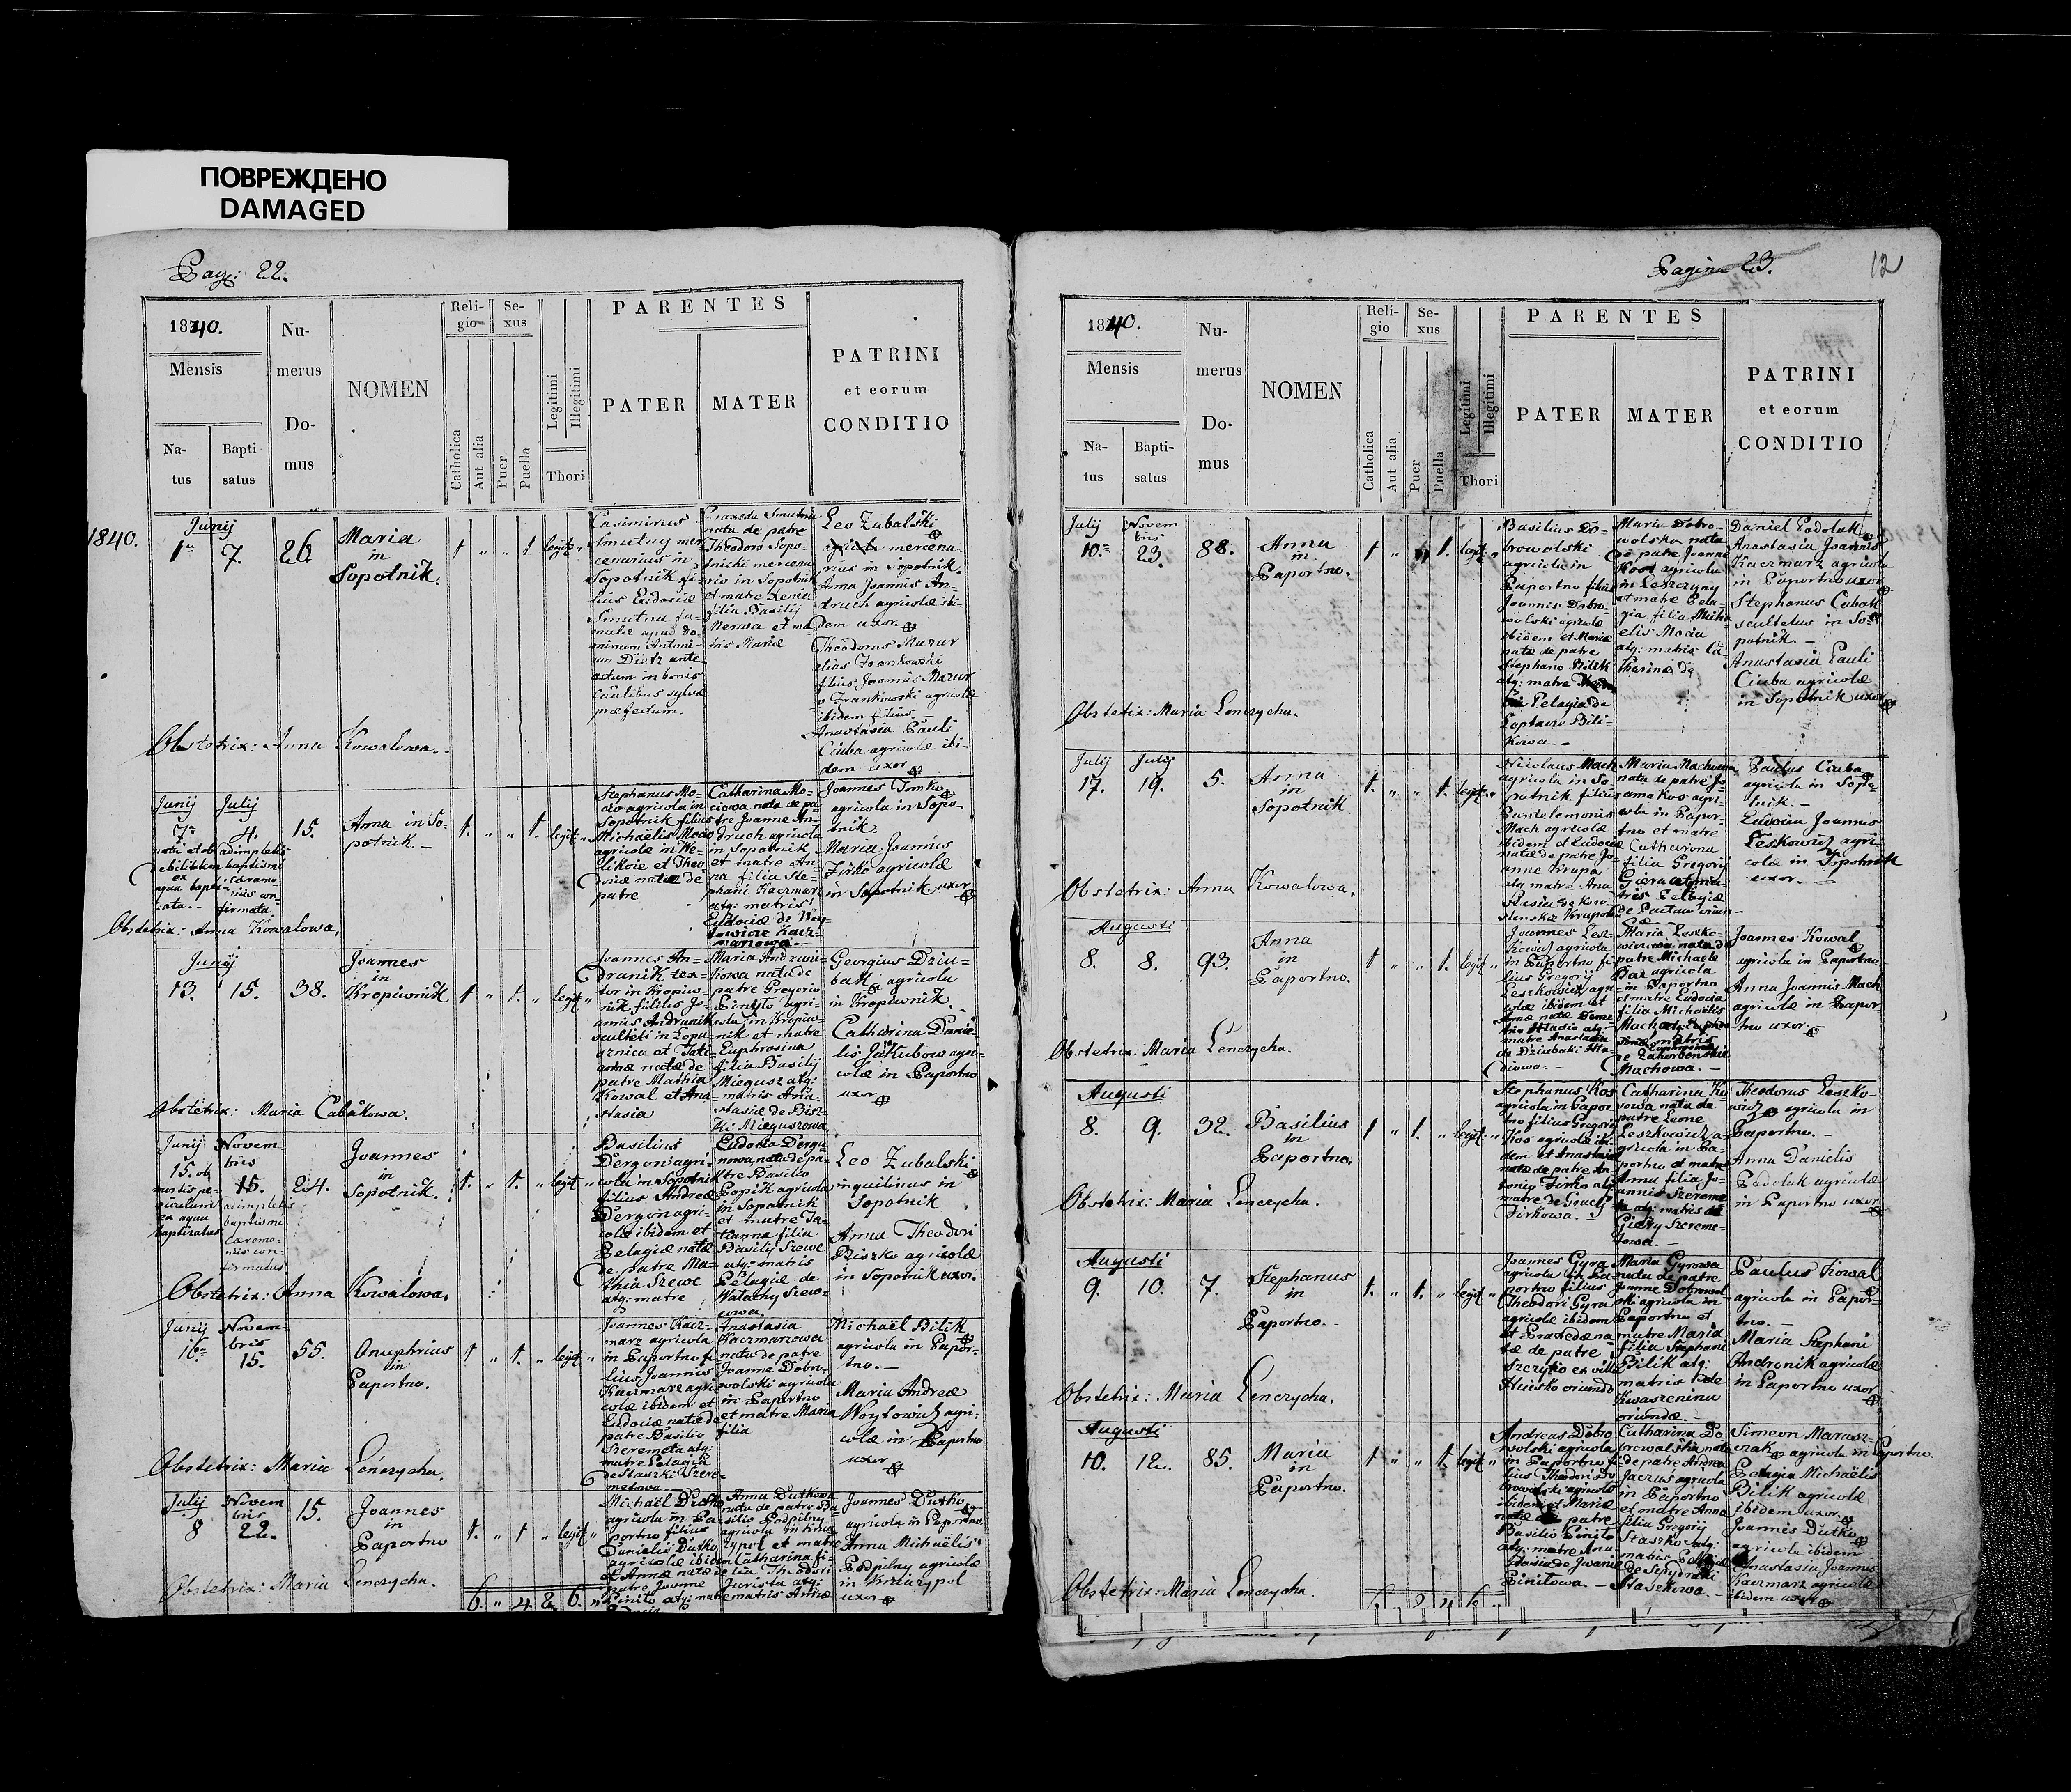 ПОВРЕЖДЕНО
DAMAGED
Pag: 22.
1840.
Mensis
Na-
tus
Bapti
satus
Nu-
merus
Do-
mus
NOMEN
Reli-
gio
Catholica
Aut alia
Se-
xus
Puer
Puella
Legitimi
Illegitimi
Thori
PARENTES
PATER
MATER
PATRINI
et eorum
CONDITIO
1840.
Junij
1ma 7. 26
Maria
in
Sopotnik.
1 " " 1 legit "
Casimirus
Smutny mer
cenarius in
Sopotnik fi-
lius Eudociæ
Smutna fa-
mulæ apud Do-
minum Antoni-
um Dietz ante-
præfectum.
Praxeda Smutna
nata de patre
Theodoro Sopo-
tnicki mercena
rio in Sopotnik
et matre Xenia
filia Basilij
Nerwa et ma
tris Mariæ
Leo Zubalski
mercena-
rius in Sopotnik.
Anna Joannis An-
druch agricolæ ibi-
dem uxor.
Theodorus Mazur
filius Joannis Mazur
agricolæ
ibidem filius
Anastasia Pauli
Ciuba agricolæ ibi-
dem uxor
Obstetrix: Anna Kowalowa.
Junij
7ma
Julij
4.
15.
Anna in So-
potnik.
1. " " 1. legit "
nata et ob
debilitatem
ex
aqua bapti-
zata.
adimpletis
baptismi
cæremo-
niis con-
firmata.
Stephanus Mo-
cio agricola in
Sopotnik filius
Michaëlis Mocio
agricolæ in We-
likoie et Theo
dosiæ natæ de
patre
Catharina Mo-
ciowa nata de pa
tre Joanne An-
druch agricola
in Sopotnik
et matre An-
na filia Ste-
phani Kaczmarz
atq: matris
Eudociæ de Woy-
towicze Kacz-
marzowa
Joannes Fimko
agricola in Sopo-
tnik.
Maria Joannis
Firko agricolæ
in Sopotnik uxor
Obstetrix: Anna Kowalowa.
Junij
13. 15. 38.
Joannes
in
Kropiwnik
1. " 1. " legit "
Joannes An-
drunik tex-
tor in Kropiw-
nik filius Jo-
annis Andrunik
sculteti in Lopu-
sznica et Tati-
annæ natæ de
patre Mathia
Kowal et Ana-
stasia
Maria Andruni-
kowa nata de
patre Gregorio
Pinyto agri-
cola in Kropiw-
nik et matre
Euphrosina
filia Basilij
Miegusz atq:
matris Ana-
stasiæ de Bisz-
ki Mieguszowa
Georgius Dziu-
bak agricola
in Kropiwnik.
Catharina Danie
lis Jakubow agri-
colæ in Paportno
uxor
Obstetrix: Maria Cabakowa.
Junij
15. ob
mortis pe-
riculum
ex aqua
baptizatus
Novem-
bris
15.
adimpletis
baptismi
cæremo-
niis con-
firmatus.
24.
Joannes
in
Sopotnik.
1. " 1. " legit "
Basilius
Dergon agri-
cola in Sopotnik
filius Andreæ
Dergon agri-
colæ ibidem et
Pelagiæ natæ
de patre Ma-
thia Szewc
atq: matre
Eudocia Dergo
nowa nata de pa-
tre Basilio
Popik agricola
in Sopotnik
et matre Ta-
tianna filia
Basilij Szewc
atq: matris
Pelagiæ de
Watachy Szew-
cowa.
Leo Zubalski
inquilinus in
Sopotnik
Anna Theodori
Biszko agricolæ
in Sopotnik uxor.
Obstetrix: Anna Kowalowa.
Junij
16ma
Novem-
bris
15.
55.
Onuphrius
in
Paportno.
1 " 1. " legit "
Joannes Kacz-
marz agricola
in Paportno fi-
lius Joannis
Kaczmarz agri-
colæ ibidem et
Eudociæ natæ de
patre Basilio
Szeremeta atq:
matre Pelagia
de Staszki Szere-
metowa.
Anastasia
Kaczmarzowa
nata de patre
Joanne Dobro-
wolski agricola
in Paportno
et matre Maria
filia
Michaël Bilik
agricola in Papor-
tno.
Maria Andreæ
Woytowicz agri-
colæ in Paportno
uxor
Obstetrix: Maria Lenczycha.
Julij
8
Novem
bris
22.
15.
Joannes
in
Paportno
1. " 1 " legit "
Michaël Dutko
agricola in Pa-
portno filius
Danielis Dutko
agricolæ ibidem
et Annæ natæ de
patre Joanne
Pinito atq: matre
Anna Dutkowa
nata de patre Ba
silio Podpilny
agricola in Krzu
czypol et matre
Catharina fi-
lia Theodori
Jurista atq:
matris Annæ
Joannes Dutko
agricola in Paportno.
Anna Michaëlis
Podpilny agricolæ
in Krzuczypol
uxor
Obstetrix: Maria Lenczycha.
6. " 4. 2. 6. "
Pagina 23.
12
1840.
Mensis
Na-
tus
Bapti-
satus
Nu-
merus
Do-
mus
NOMEN
Reli-
gio
Catholica
Aut alia
Se-
xus
Puer
Puella
Legitimi
Illegitimi
Thori
PARENTES
PATER
MATER
PATRINI
et eorum
CONDITIO
Julij
10ma
Novem
bris
23.
88.
Anna
in
Paportno.
1 " " 1. legit "
Basilius Do-
browolski
agricola in
Paportno filius
Joannis Dobro-
wolski agricolæ
ibidem et Mariæ
natæ de patre
Stephano Bilik
atq: matre
Pelagia de
Laptacze Bili-
kowa.
Maria Dobro-
wolska nata
de patre Joanne
Kost agricola
in Leszczyny
et matre Pela-
gia filia Micha-
elis Mocia
atq: matris Ca-
tharinæ de
Daniel Podolak
Anastasia Joannis
Kaczmarz agricolæ
in Paportno uxor
Stephanus Cabak
scultetus in So-
potnik.
Anastasia Pauli
Ciuba agricolæ
in Sopotnik uxor
Obstetrix: Maria Lenczycha.
Julij
17.
Julij
19.
5.
Anna
in
Sopotnik
1. " " 1. legit "
Nicolaus Mach
agricola in So-
potnik filius
Pantelemonis
Mach agricolæ
ibidem et Eudociæ
natæ de patre Jo-
anne Krupa
atq: matre Ana
stasia de Kow-
Maria Machowa
nata de patre Jo-
anne Kos agri-
cola in Papor-
tno et matre
Catharina
filia Gregorij
Giera atq: ma-
tris Pelagiæ
Paulus Ciuba
agricola in Sopo-
tnik.
Eudocia Joannis
Leszkowicz agri-
colæ in Sopotnik
uxor.
Obstetrix: Anna Kowalowa.
Augusti
8. 8. 93.
Anna
in
Paportno.
1 " " 1. legit "
Joannes Lesz-
kowicz agricola
in Paportno fi-
lius Gregorij
Leszkowicz agri-
colæ ibidem et
Annæ natæ Deme
matre Anastasia
de Dziubaki
Maria Leszko-
wiczowa nata de
patre Michaele
Baz agricola
in Paportno
et matre Eudocia
filia Michaëlis
Machowa.
Joannes Kowal
agricola in Paportno.
Anna Joannis Mach
agricolæ in Papor-
tno uxor.
Obstetrix: Maria Lenczycha.
Augusti
8. 9. 32.
Basilius
in
Paportno.
1 " 1. " legit "
Stephanus Kos
agricola in Papor
tno filius Gregorij
Kos agricolæ ibi-
dem et Anastasiæ
natæ de patre An-
tonio Firko atq:
matre de
Firkowa.
Catharina Ko
sowa nata de
patre Leone
Leszkowicz a-
gricola in Pa-
portno et matre
Anna filia Jo-
annis Szereme
ta atq: matris de
Giery Szereme-
towa.
Theodorus Leszko-
wicz agricola in
Paportno.
Anna Danielis
Podolak agricolæ
in Paportno uxor
Obstetrix: Maria Lenczycha.
Augusti
9. 10. 7.
Stephanus
in
Paportno.
1. " 1. " legit "
Joannes Gyra
agricola in Pa-
portno filius
Theodori Gyra
agricolæ ibidem
et Praxedæ na-
tæ de patre
Szczyko ex villa
Huisko oriundo
Maria Gyrowa
nata de patre
Joanne Dobrowol
ski agricola in
Paportno et
matre Maria
filia Stephani
Bilik atq:
matris de
Kwaszenina
oriundæ.
Paulus Kowal
agricola in Papor-
tno.
Maria Stephani
Andronik agricolæ
in Paportno uxor
Obstetrix: Maria Lenczycha.
Augusti
10. 12. 85.
Maria
in
Paportno.
1 " " 1. legit "
Andreas Dobro
wolski agricola
in Paportno fi-
lius Theodori Do
browolski agricolæ
ibidem et Mariæ
natæ de patre
Basilio Pinito
atq: matre Ana
stasia de Iwanie
Pinitowa.
Catharina Do
browolska nata
de patre Andrea
Jaczus agricola
in Paportno
et matre Anna
filia Gregorij
Staszko atq:
matris
Staszkowa.
Simeon Marasz-
czak agricola in Paportno.
Pelagia Michaëlis
Bilik agricolæ
ibidem uxor
Joannes Dutko
agricola ibidem
Anastasia Joannis
Kaczmarz agricolæ
ibidem uxor
Obstetrix: Maria Lenczycha
6. " 2 4 6. "